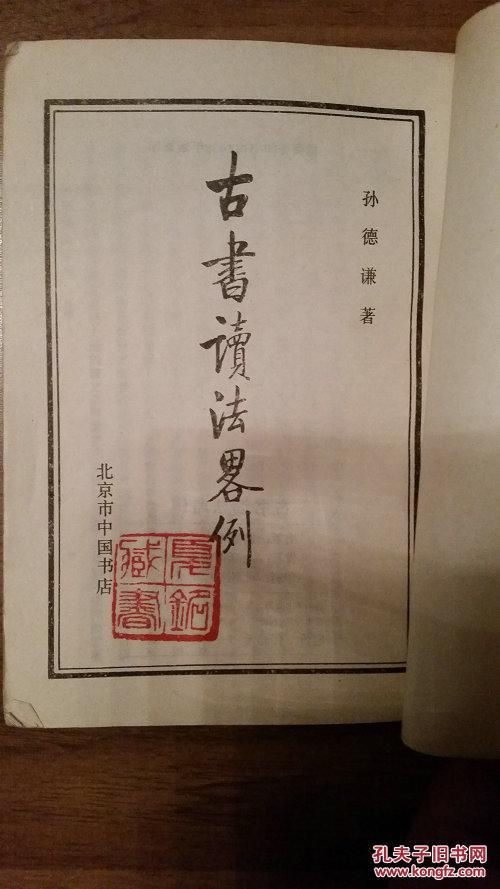 孙德谦著
古書讀法畧例
北京市中国书店
夏銘
藏書
孔夫子旧书网
www.kongfz.com